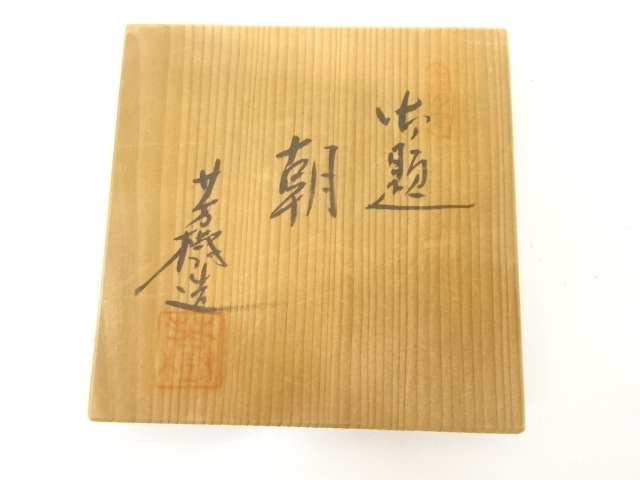 御題
朝
芳機造